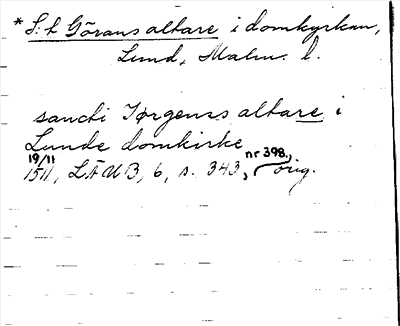 * S:t Görans altare i domkyrkan,
Lund, Malm. l.
sancti Jørgenss altare i
Lunde domkirke
19/11 1511, LÄUB, 6, s. 343, nr 398, orig.